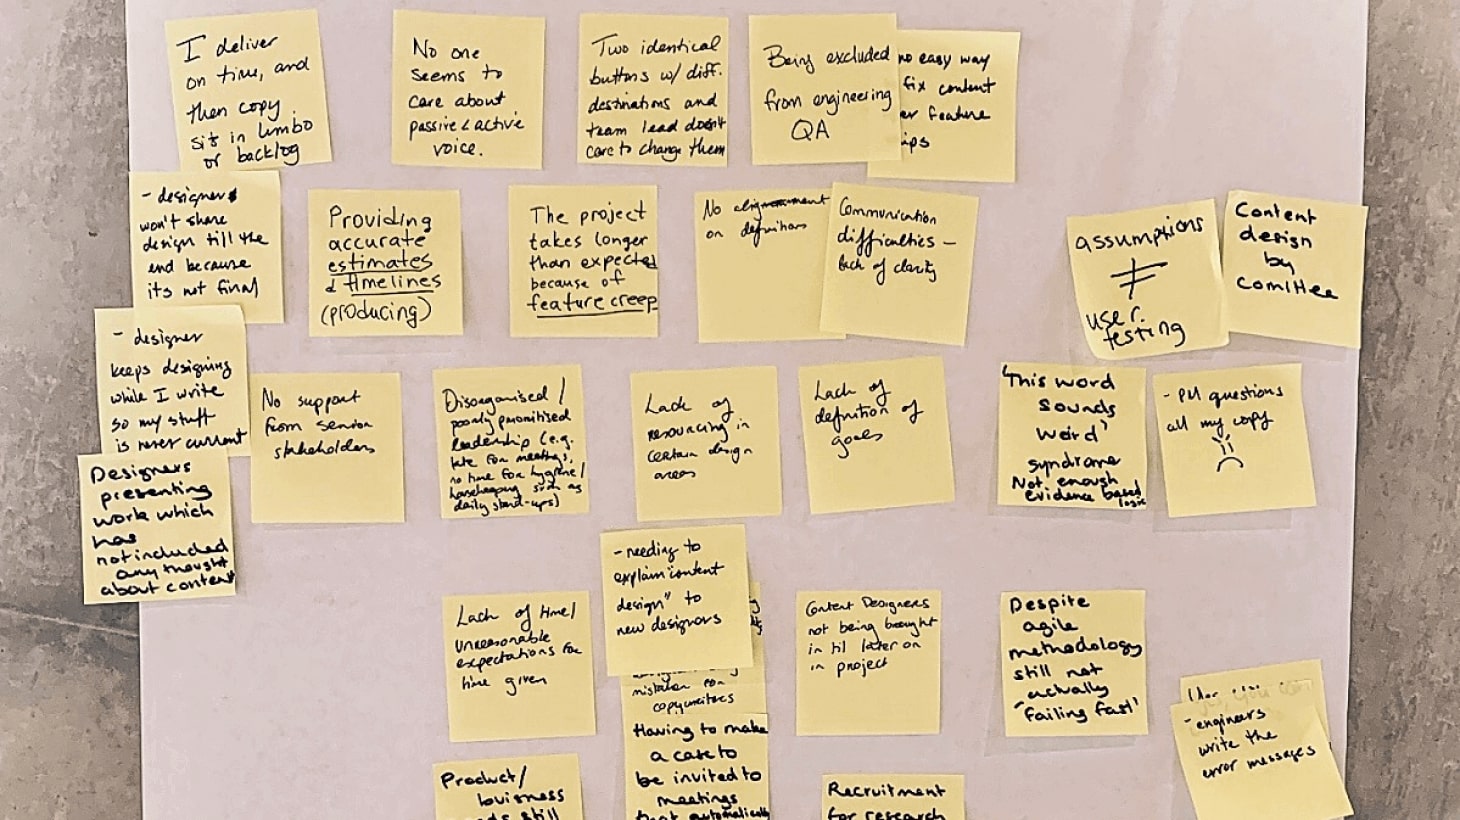 I deliver
on time, and
then copy
sits in limbo
or backlog
No one
seems to
care about
passive & active
voice.
Two identical
buttons w/ diff.
destinations and
team lead doesn't
care to change them
Being excluded
from engineering
QA
no easy way
fix content
er feature
ips
- designers
won't share
design till the
end because
it's not final
Providing
accurate
estimates
& timelines
(producing)
The project
takes longer
than expected
because of
feature creep
No alignment
on definitions
Communication
difficulties –
lack of clarity
assumptions
≠
user
testing
Content
design
by
comittee
- designer
keeps designing
while I write
so my stuff
is never current
No support
from senior
stakeholders
Disorganised /
poorly prioritised
leadership (e.g.
late for meetings,
no time for hygiene/
housekeeping such as
daily stand-ups)
Lack of
resourcing in
certain design
areas
Lack of
definition of
goals
'This word
sounds
weird'
syndrome
Not enough
evidence based
logic
- PM questions
all my copy
Designers
presenting
work which
has
not included
any thought
about content
Lack of time/
unreasonable
expectations for
time given
- needing to
explain "content
design" to
new designors
mistaken for
copywriters
Having to make
a case to
be invited to
meetings
that automatically
Content Designers
not being brought
in til later on
in project
Despite
agile
methodology
still not
actually
'failing fast'
- engineers
write the
error messages
Product/
business
still
Recruitment
for research